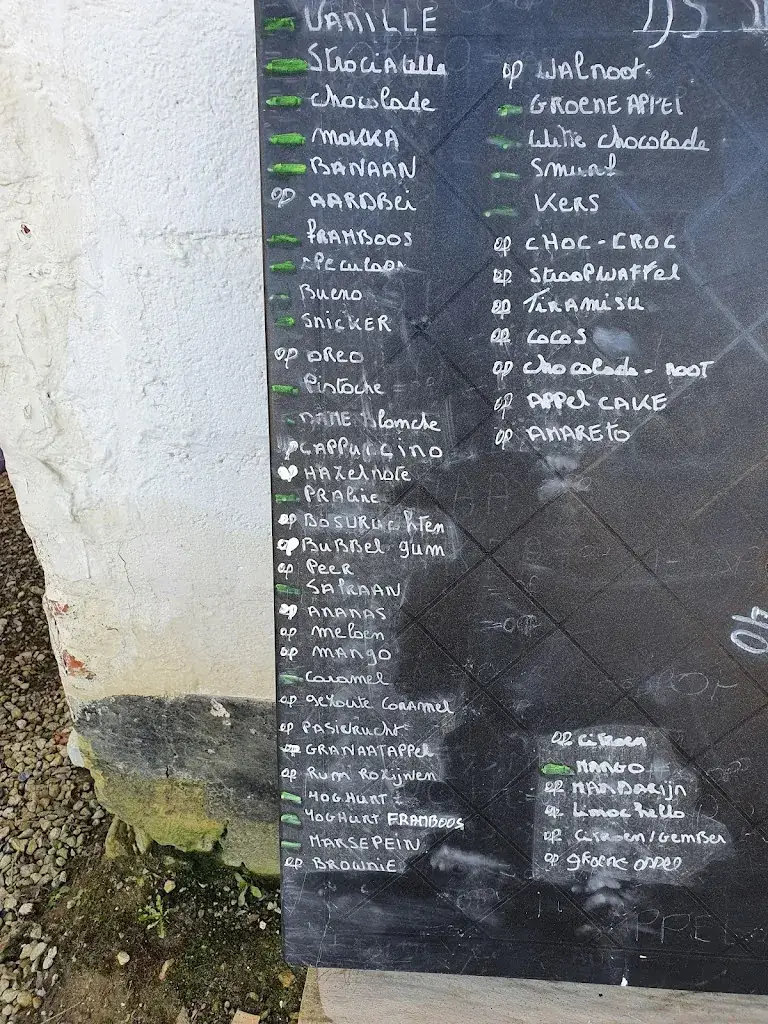 VANILLE
StrociAtella
chocolade
MOKKA
BANAAN
op AARDBei
fRAMBOOS
speculoos
Bueno
SnicKER
op OREO
Pistache
DAME Blanche
CAPPUCCINO
HAZelnote
PRAline
op BOSURUchten
op BuBBel gum
op Peer
SAfRAAN
op ANANAS
op Meloen
op MANGO
Caramel
op geZoute CORAMEL
op PASieRucht
op GRANAATAPPel
op Rum Rozijnen
YOGHURT
YOGHURT FRAMBOOS
MARSEPEIN
op BROWNIE
IJS
op WALnoot
GROENE APPEL
Witte chocolade
Smurf
KERS
op CHOC-CROC
op StROOPWAffel
op TiRAMiSU
op COCOS
op chocolade-NOOT
op APPel CAKE
op AMARETO
op citroen
MANGO
op MANDARIJN
op Limochello
op CitROEN/GemBer
op groene appel